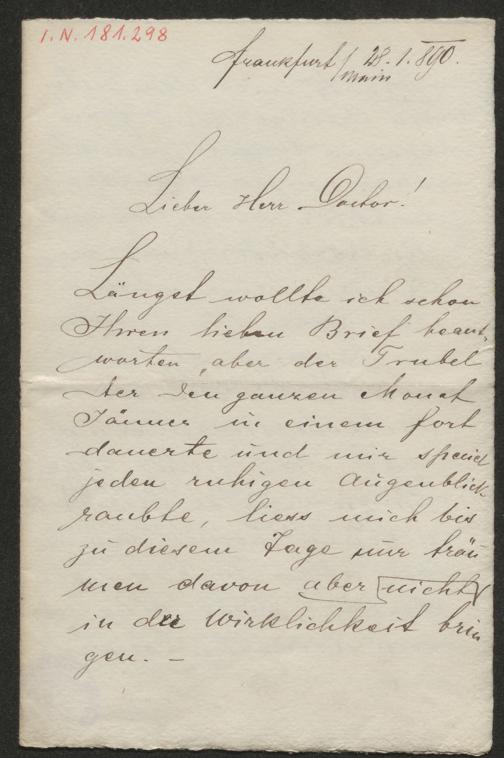 I.N. 181.298
Frankfurt / Main 28.1.890.
Lieber Herr Doctor!
Längst wollte ich schon
Ihren lieben Brief beant-
worten, aber der Trubel
der den ganzen Monat
Jänner in einem fort
dauerte und mir speciel
jeden ruhigen Augenblick
raubte, liess mich bis
zu diesem Tage nur träu
men davon aber nicht
in die Wirklichkeit brin
gen. —